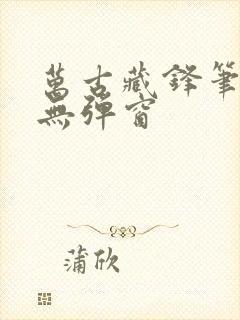 萬古藏鋒筆
無彈窗
蒲欣